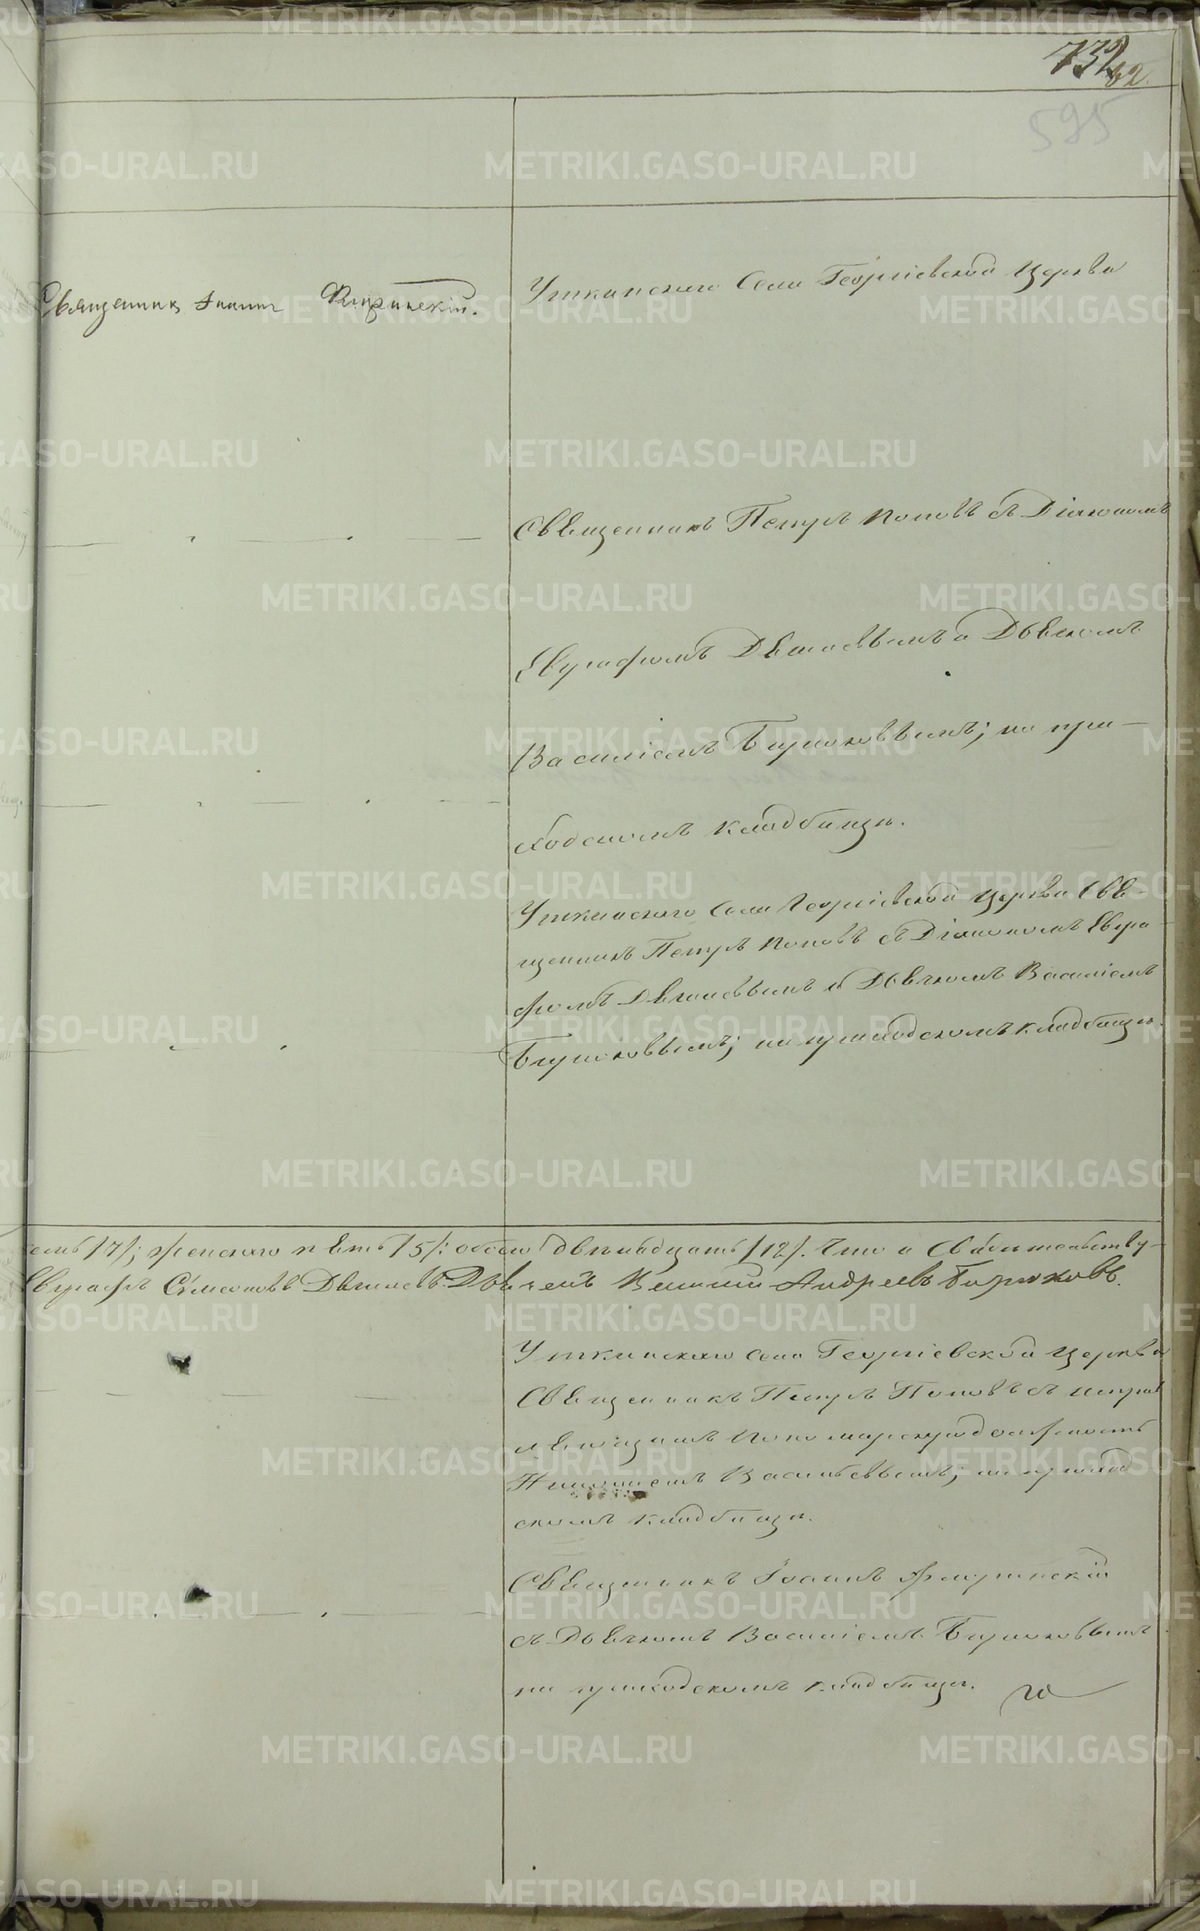 732
62
595
Священникъ Іоаннъ Флоринскій.
Уткинскаго Села Георгіевской Церкви
Священникъ Петръ Поповъ съ Діакономъ
Евграфомъ и Дьячкомъ
Василіемъ Бирюковымъ; на при-
ходскомъ кладбищѣ.
Уткинскаго Села Георгіевской Церкви Свя-
щенникъ Петръ Поповъ съ Діакономъ Евгра-
фомъ и Дьячкомъ Василіемъ
Бирюковымъ; на приходскомъ кладбищѣ.
семь /7/; женскаго пять /5/: обоего двѣнадцать /12/. Что и Свидѣтельству-
Евграфъ Симеоновъ Дьячекъ Андреевъ Бирюковъ.
Уткинскаго Села Георгіевской Церкви
Священникъ Петръ Поповъ съ исправ
ляющимъ Пономарскую должность
Васильевымъ; на приход
скомъ кладбищѣ.
Священникъ Іоаннъ Флоринскій
съ Дьячкомъ Василіемъ Бирюковымъ
на приходскомъ кладбищѣ.
METRIKI.GASO-URAL.RU